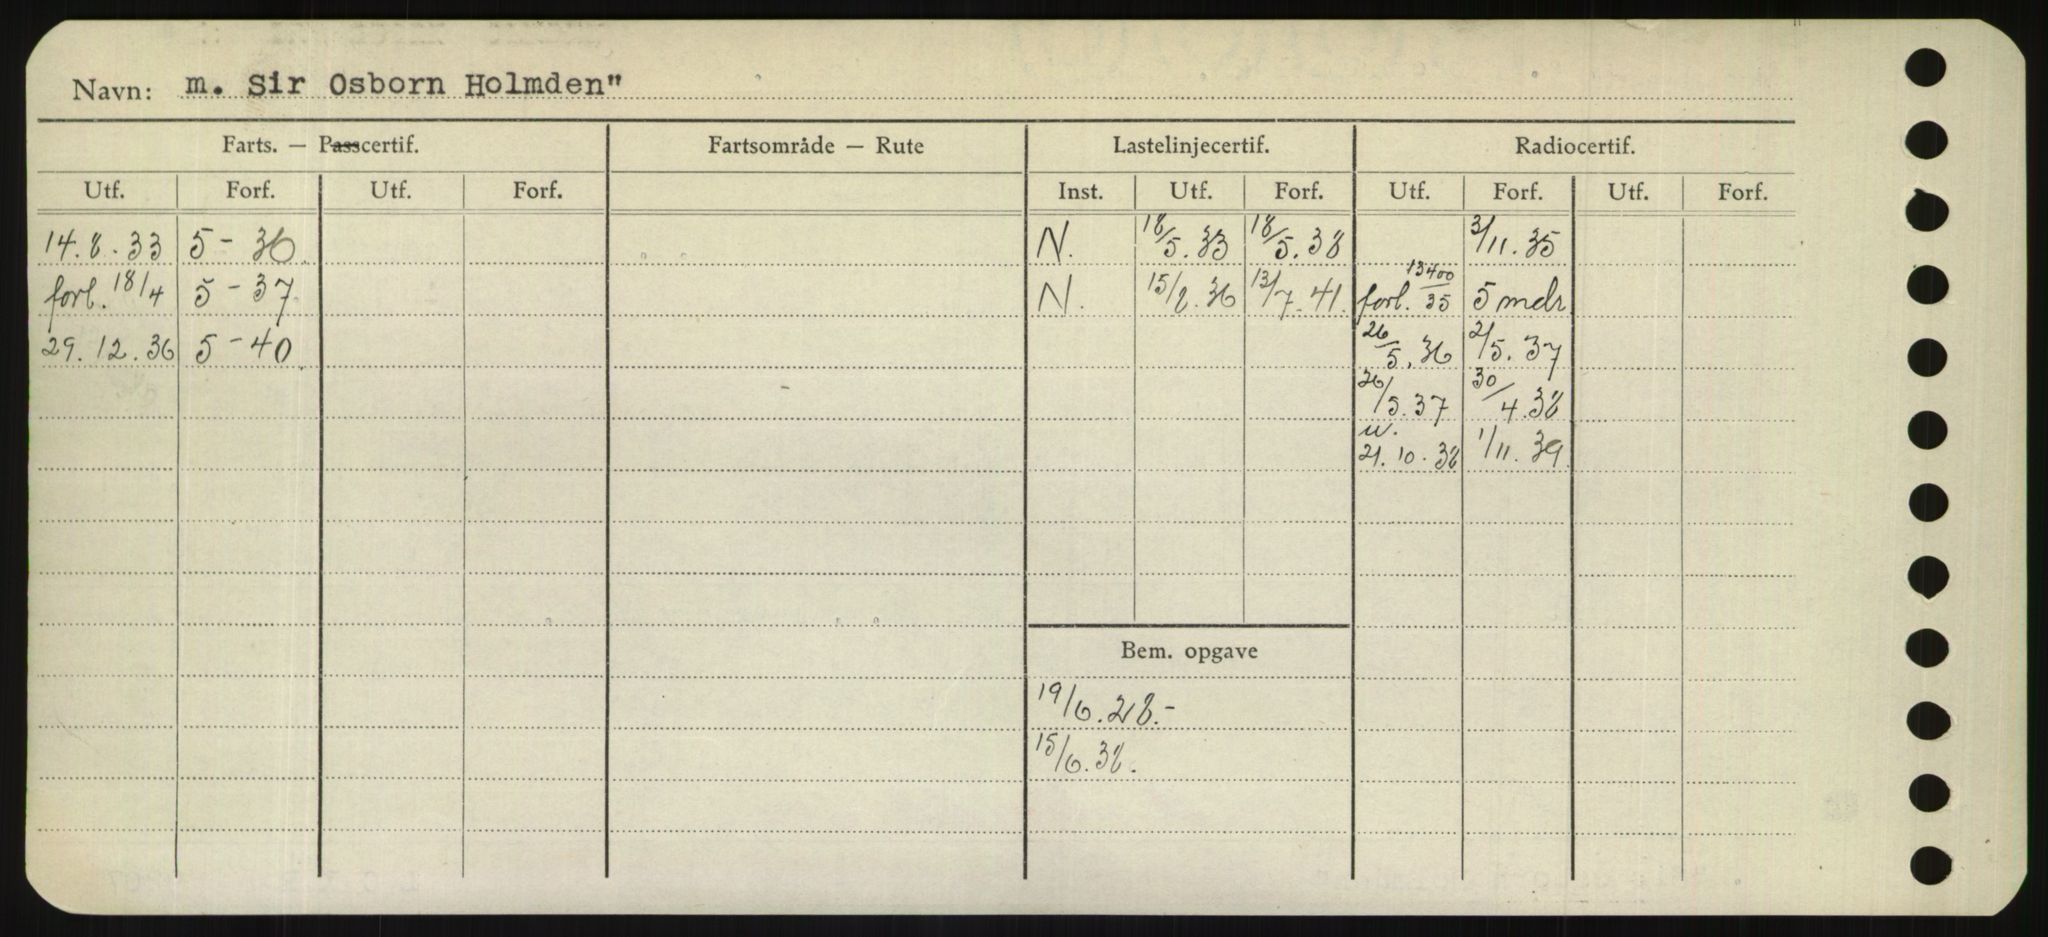 Navn: m. Sir Osborn Holmden"
Farts. — Passcertif. Fartsområde — Rute Lastelinjecertif. Radiocertif.
Utf. Forf. Utf. Forf. Inst. Utf. Forf. Utf. Forf. Utf. Forf.
14.8.33 5-36 N. 18/5.33 18/5.38 3/11.35
forl. 18/4 5-37 N. 15/2.36 13/7.41. forl. 13400/35 5 mdr
29.12.36 5-40 26/5.36 2/5.37
26/5.37 30/4.38
u.
21.10.38 1/11.39
Bem. opgave
19/6.28.-
15/6.38.